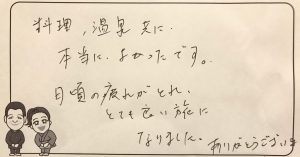 料理、温泉共に、
本当に、よかったです。
日頃の疲れがとれ、
とても良い旅に
なりました。ありがとうございま